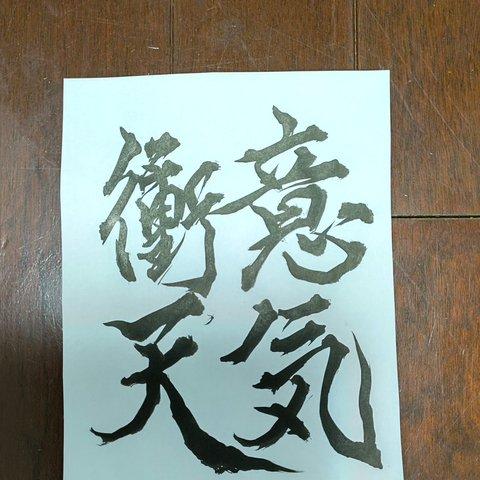 意気
衝天